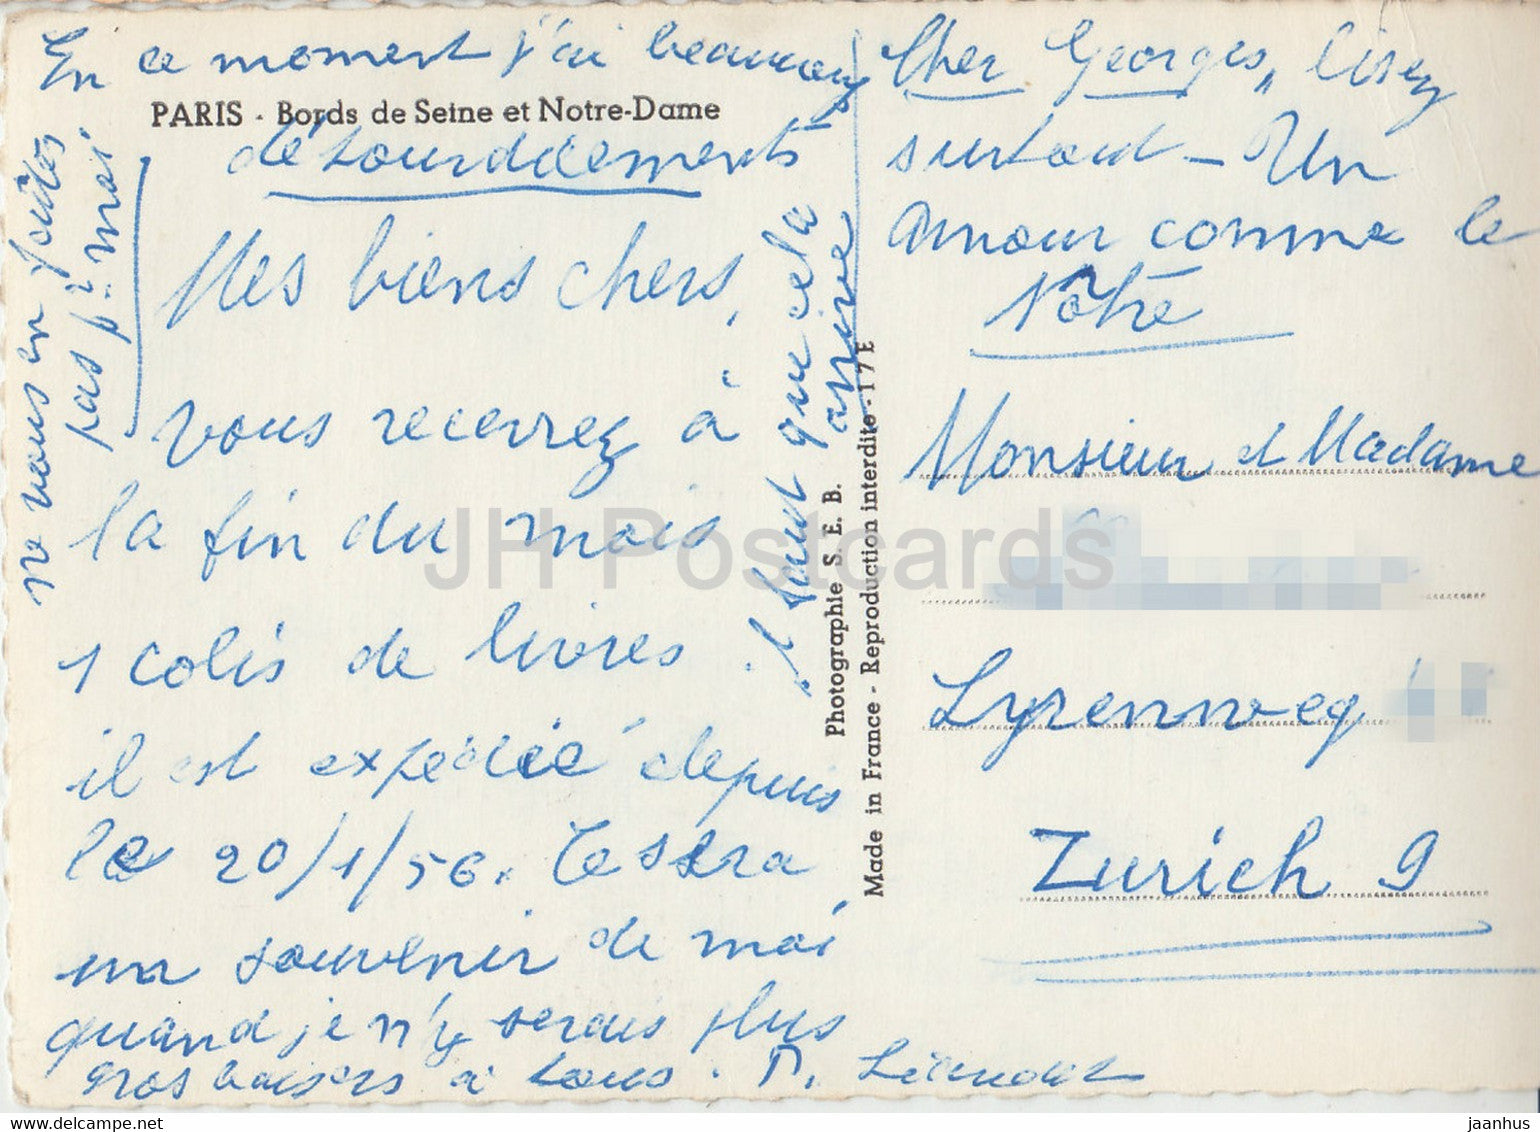 En ce moment j'ai beaucoup
PARIS - Bords de Seine et Notre-Dame
d'étourdissements
Mes biens chers,
vous recevrez à
la fin du mois
1 colis de livres
il est expédié depuis
le 20/1/56. Ce sera
un souvenir de moi
quand je n'y serais plus
gros baisers à tous.
ne vous en faites
pas pr moi
il faut que cela
arrive
Photographie S. E. B.
Made in France - Reproduction interdite - 17 E
Cher Georges, lisez
surtout - Un
amour comme le
Nôtre
Monsieur et Madame
Lyrenweg
Zurich 9
JH Postcards
jaanhus
www.delcampe.net